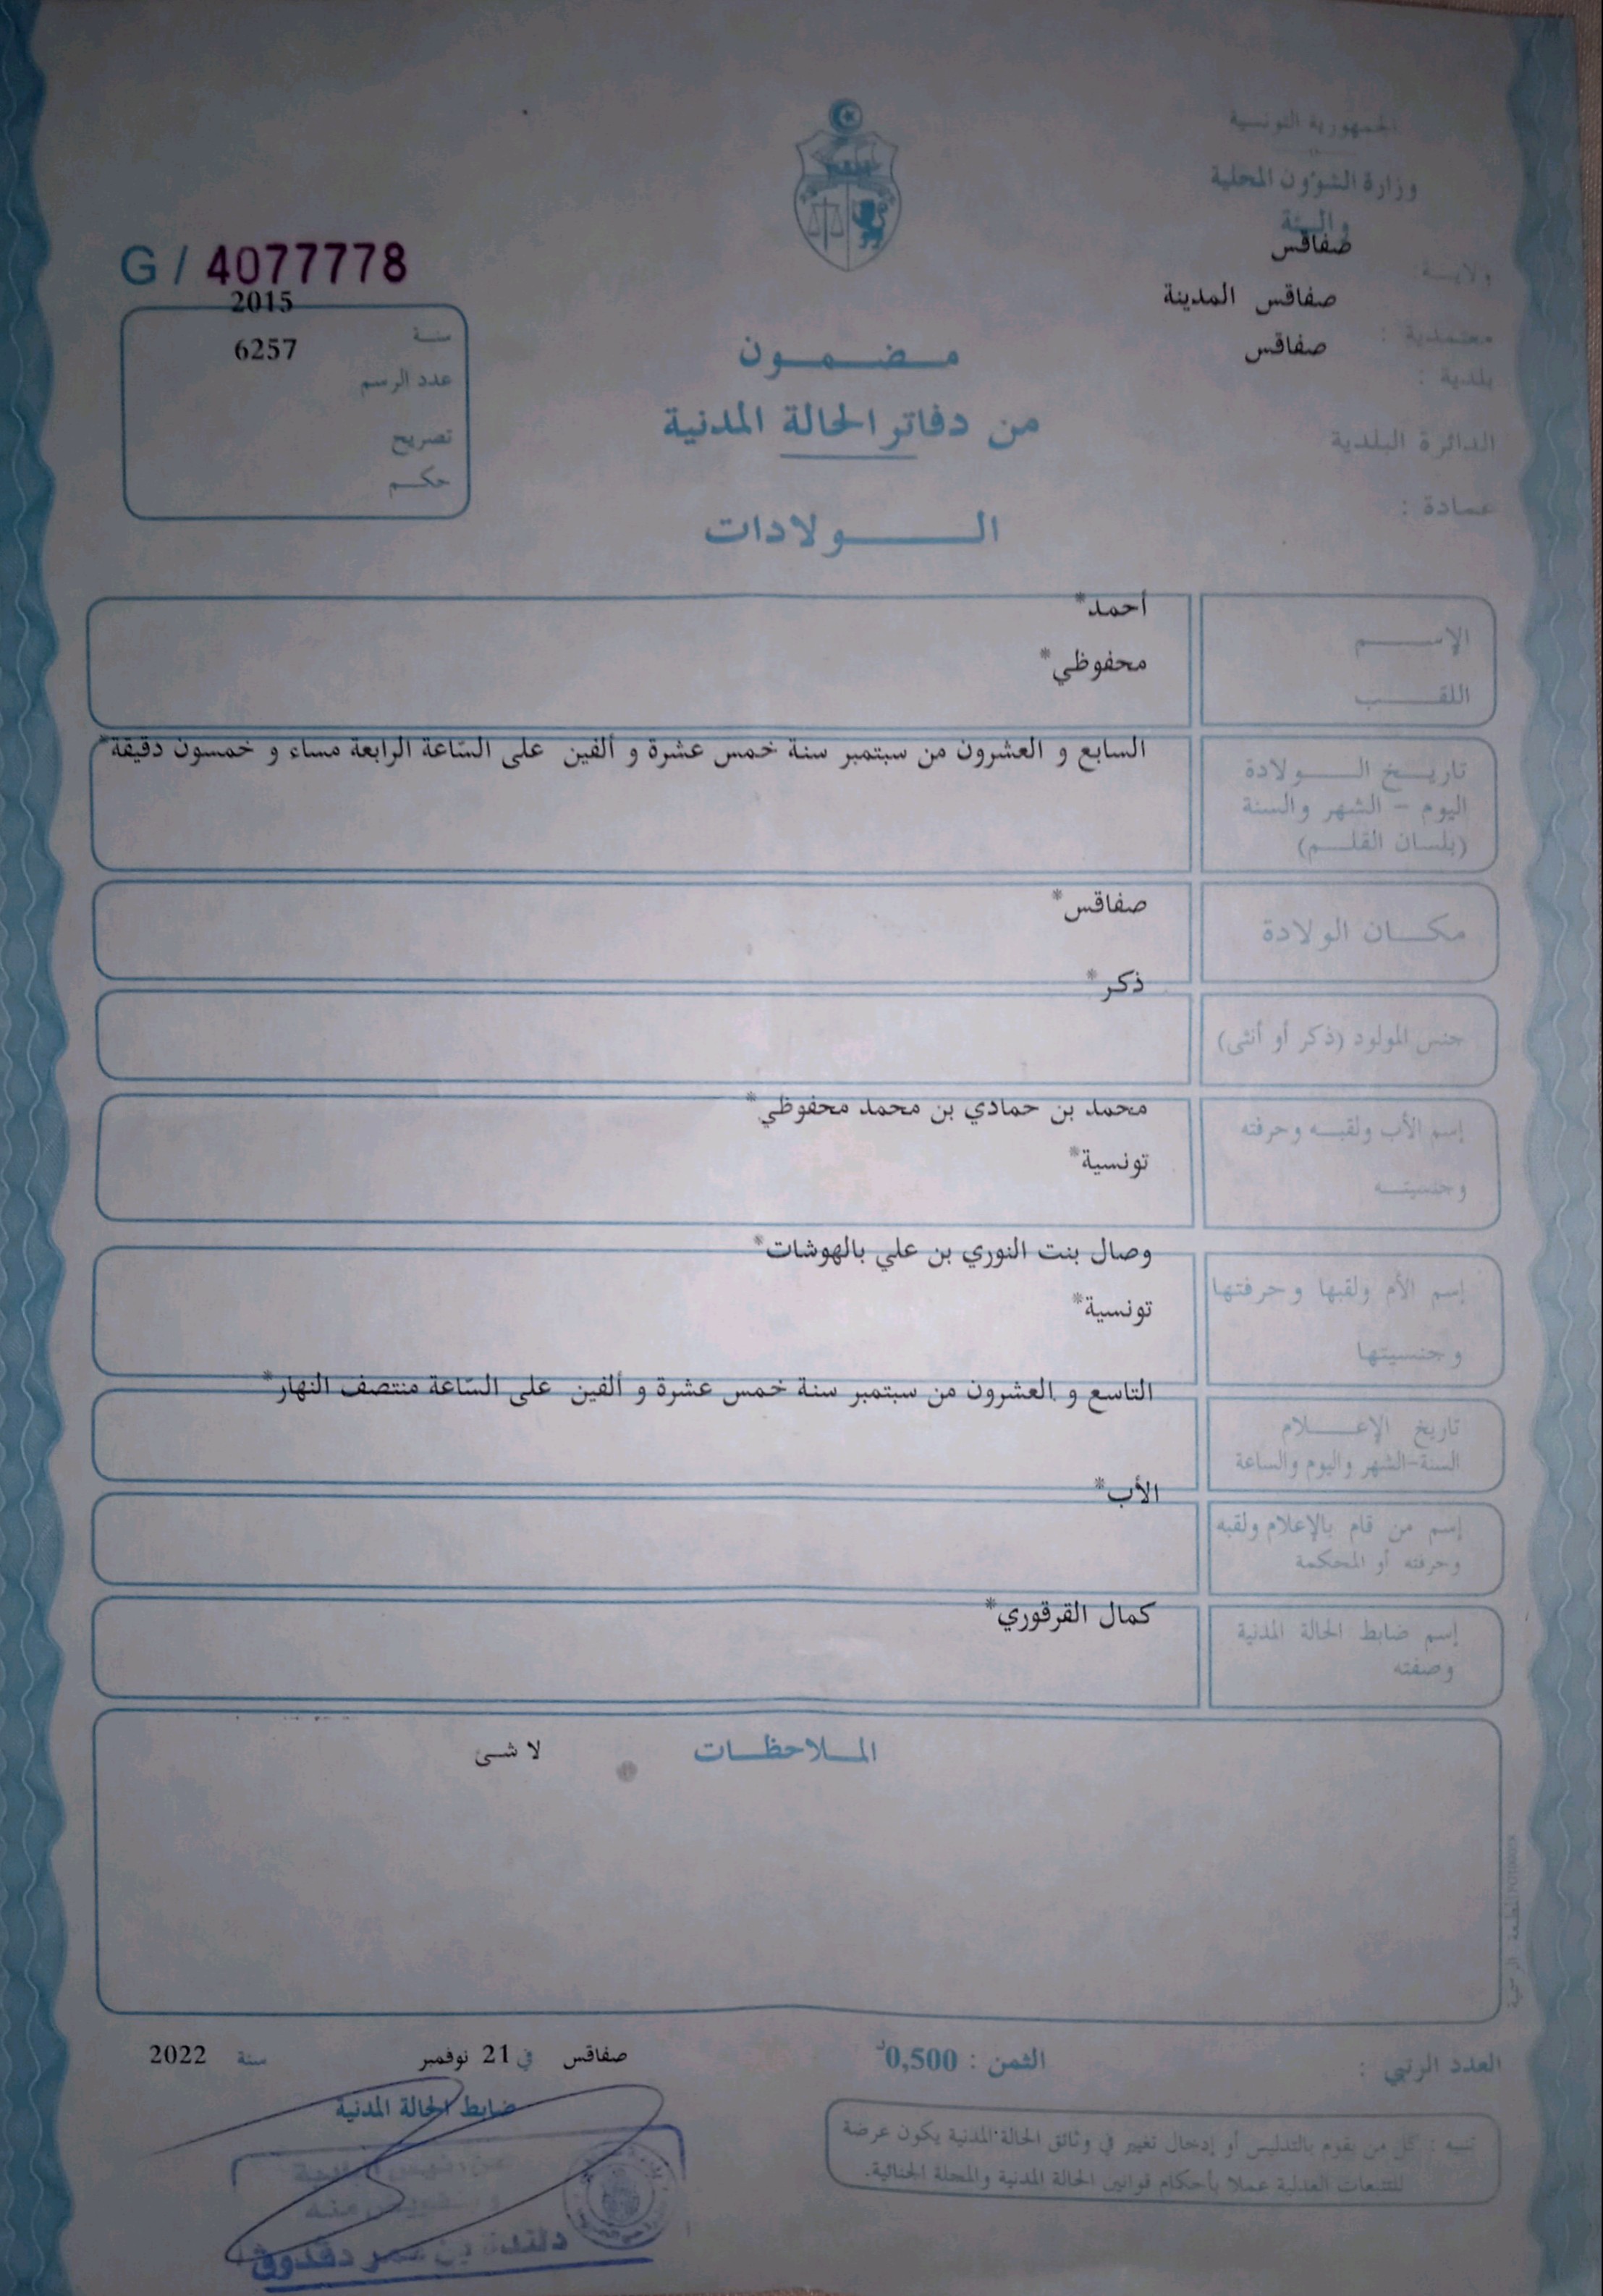 الجمهورية التونسية
وزارة الشؤون المحلية
والبيئة
ولايــة: صفاقس
معتمدية : صفاقس المدينة
بلدية : صفاقس
الدائرة البلدية
عمادة :
G / 4077778
سنة 2015
عدد الرسم 6257
تصريح
حكم
مضمون
من دفاتر الحالة المدنية
الولادات
الإسم أحمد*
اللقب محفوظي*
تاريخ الولادة السابع و العشرون من سبتمبر سنة خمس عشرة و ألفين على السّاعة الرابعة مساء و خمسون دقيقة*
اليوم - الشهر والسنة
(بلسان القلم)
مكان الولادة صفاقس*
جنس المولود (ذكر أو أنثى) ذكر*
إسم الأب ولقبه وحرفته محمد بن حمادي بن محمد محفوظي*
وجنسيته تونسية*
إسم الأم ولقبها وحرفتها وصال بنت النوري بن علي بالهوشات*
وجنسيتها تونسية*
تاريخ الإعلام التاسع و العشرون من سبتمبر سنة خمس عشرة و ألفين على السّاعة منتصف النهار*
السنة-الشهر واليوم والساعة
إسم من قام بالإعلام ولقبه الأب*
وحرفته أو المحكمة
إسم ضابط الحالة المدنية كمال القرقوري*
وصفته
الملاحظات لا شى
العدد الرتبي :
الثمن : 0,500د
صفاقس في 21 نوفمبر سنة 2022
ضابط الحالة المدنية
تنبيه : كل من يقوم بالتدليس أو إدخال تغيير في وثائق الحالة المدنية يكون عرضة
للتتبعات العدلية عملا بأحكام قوانين الحالة المدنية والمجلة الجنائية.